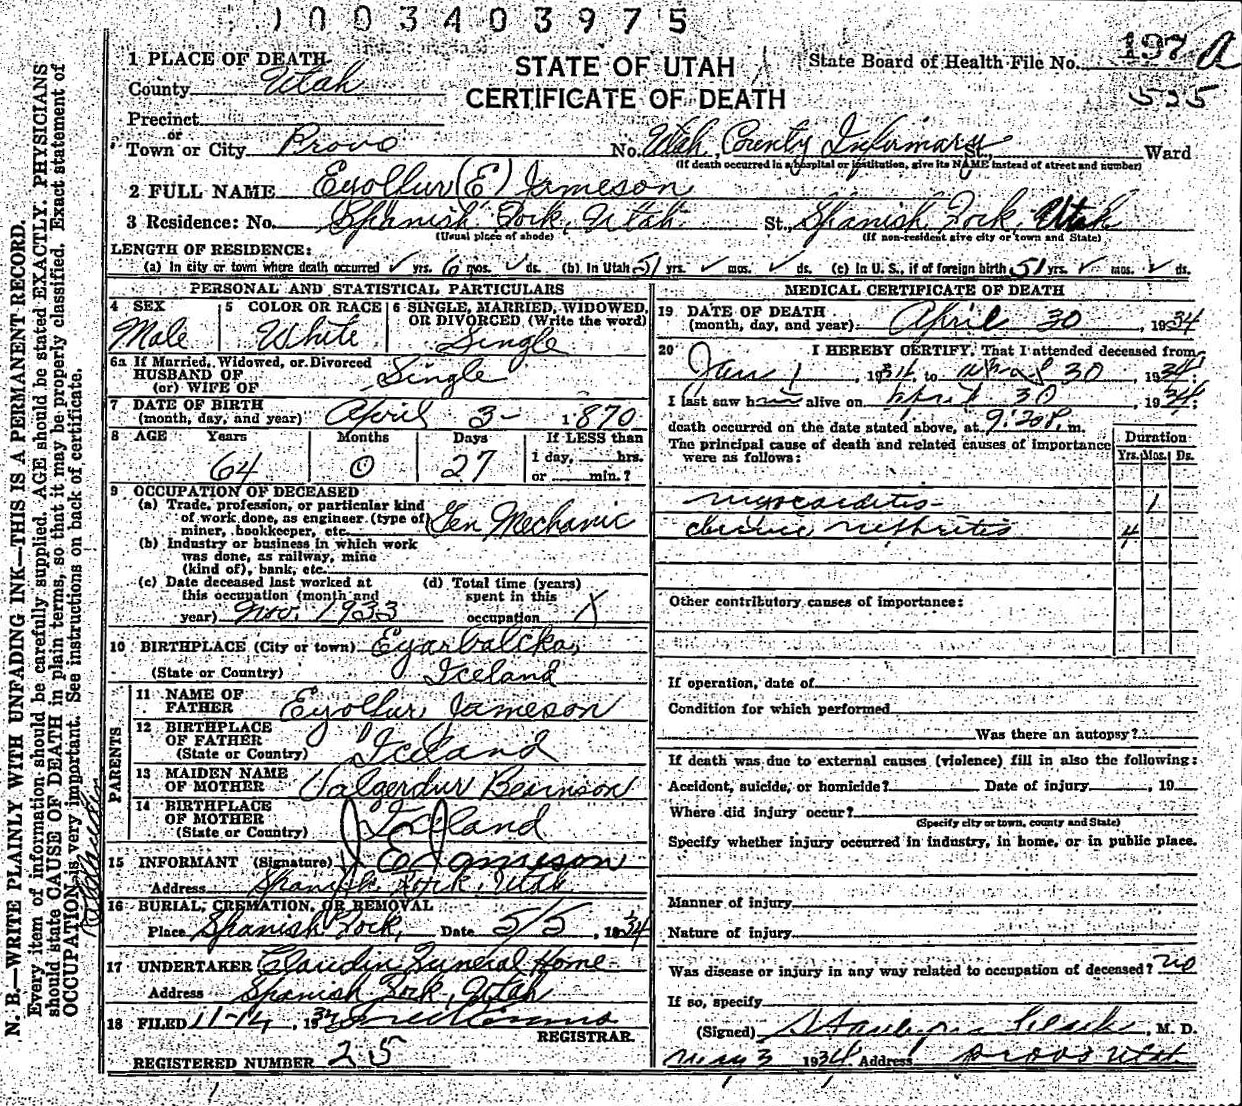 1003403975
1 PLACE OF DEATH
STATE OF UTAH
CERTIFICATE OF DEATH
State Board of Health File No. 197 A
525
County Utah
Precinct
or
Town or City Provo No. Utah County Infirmary St., Ward
(If death occurred in a hospital or institution, give its NAME instead of street and number)
2 FULL NAME Eyolfur (E) Jameson
3 Residence: No. Spanish Fork, Utah St., Spanish Fork, Utah
(Usual place of abode) (If non-resident give city or town and State)
LENGTH OF RESIDENCE:
(a) In city or town where death occurred ✓ yrs. 6 mos. ✓ ds. (b) In Utah 51 yrs. ✓ mos. ✓ ds. (c) In U. S., if of foreign birth 51 yrs. ✓ mos. ✓ ds.
PERSONAL AND STATISTICAL PARTICULARS
4 SEX Male
5 COLOR OR RACE White
6 SINGLE, MARRIED, WIDOWED,
OR DIVORCED (Write the word)
Single
6a If Married, Widowed, or Divorced
HUSBAND OF
(or) WIFE OF Single
7 DATE OF BIRTH
(month, day, and year) April 3- 1870
8 AGE Years Months Days If LESS than
64 0 27 1 day, hrs.
or min.?
9 OCCUPATION OF DECEASED
(a) Trade, profession, or particular kind
of work done, as engineer (type of)
miner, bookkeeper, etc. Gen Mechanic
(b) Industry or business in which work
was done, as railway, mine
(kind of), bank, etc.
(c) Date deceased last worked at
this occupation (month and
year) Nov. 1933
(d) Total time (years)
spent in this
occupation X
10 BIRTHPLACE (City or town)
(State or Country) Iceland
PARENTS
11 NAME OF
FATHER Eyolfur Jameson
12 BIRTHPLACE
OF FATHER
(State or Country) Iceland
13 MAIDEN NAME
OF MOTHER Valgerdur Bearnson
14 BIRTHPLACE
OF MOTHER
(State or Country) Iceland
15 INFORMANT (Signature) J E Jameson
Address Spanish Fork, Utah
16 BURIAL, CREMATION, OR REMOVAL
Place Spanish Fork, Date 5/5, 1934
17 UNDERTAKER Claudin Funeral Home
Address Spanish Fork, Utah
18 FILED 11-14, 1934
REGISTRAR
REGISTERED NUMBER 25
MEDICAL CERTIFICATE OF DEATH
19 DATE OF DEATH
(month, day, and year) April 30, 1934
20 I HEREBY CERTIFY, That I attended deceased from
Jan 1, 1934, to April 30, 1934
I last saw him alive on April 30, 1934;
death occurred on the date stated above, at 9:20 p. m.
The principal cause of death and related causes of importance
were as follows:
Duration
Yrs. Mos. Ds.
myocarditis - 1
chronic nephritis 4
Other contributory causes of importance:
If operation, date of
Condition for which performed
Was there an autopsy?
If death was due to external causes (violence) fill in also the following:
Accident, suicide, or homicide? Date of injury , 19
Where did injury occur?
(Specify city or town, county and State)
Specify whether injury occurred in industry, in home, or in public place.
Manner of injury
Nature of injury
Was disease or injury in any way related to occupation of deceased? no
If so, specify
(Signed) Clark, M. D.
May 3 1934 Address Provo Utah
N. B.—WRITE PLAINLY WITH UNFADING INK—THIS IS A PERMANENT RECORD.
Every item of information should be carefully supplied. AGE should be stated EXACTLY. PHYSICIANS
should state CAUSE OF DEATH in plain terms, so that it may be properly classified. Exact statement of
OCCUPATION is very important. See instructions on back of certificate.